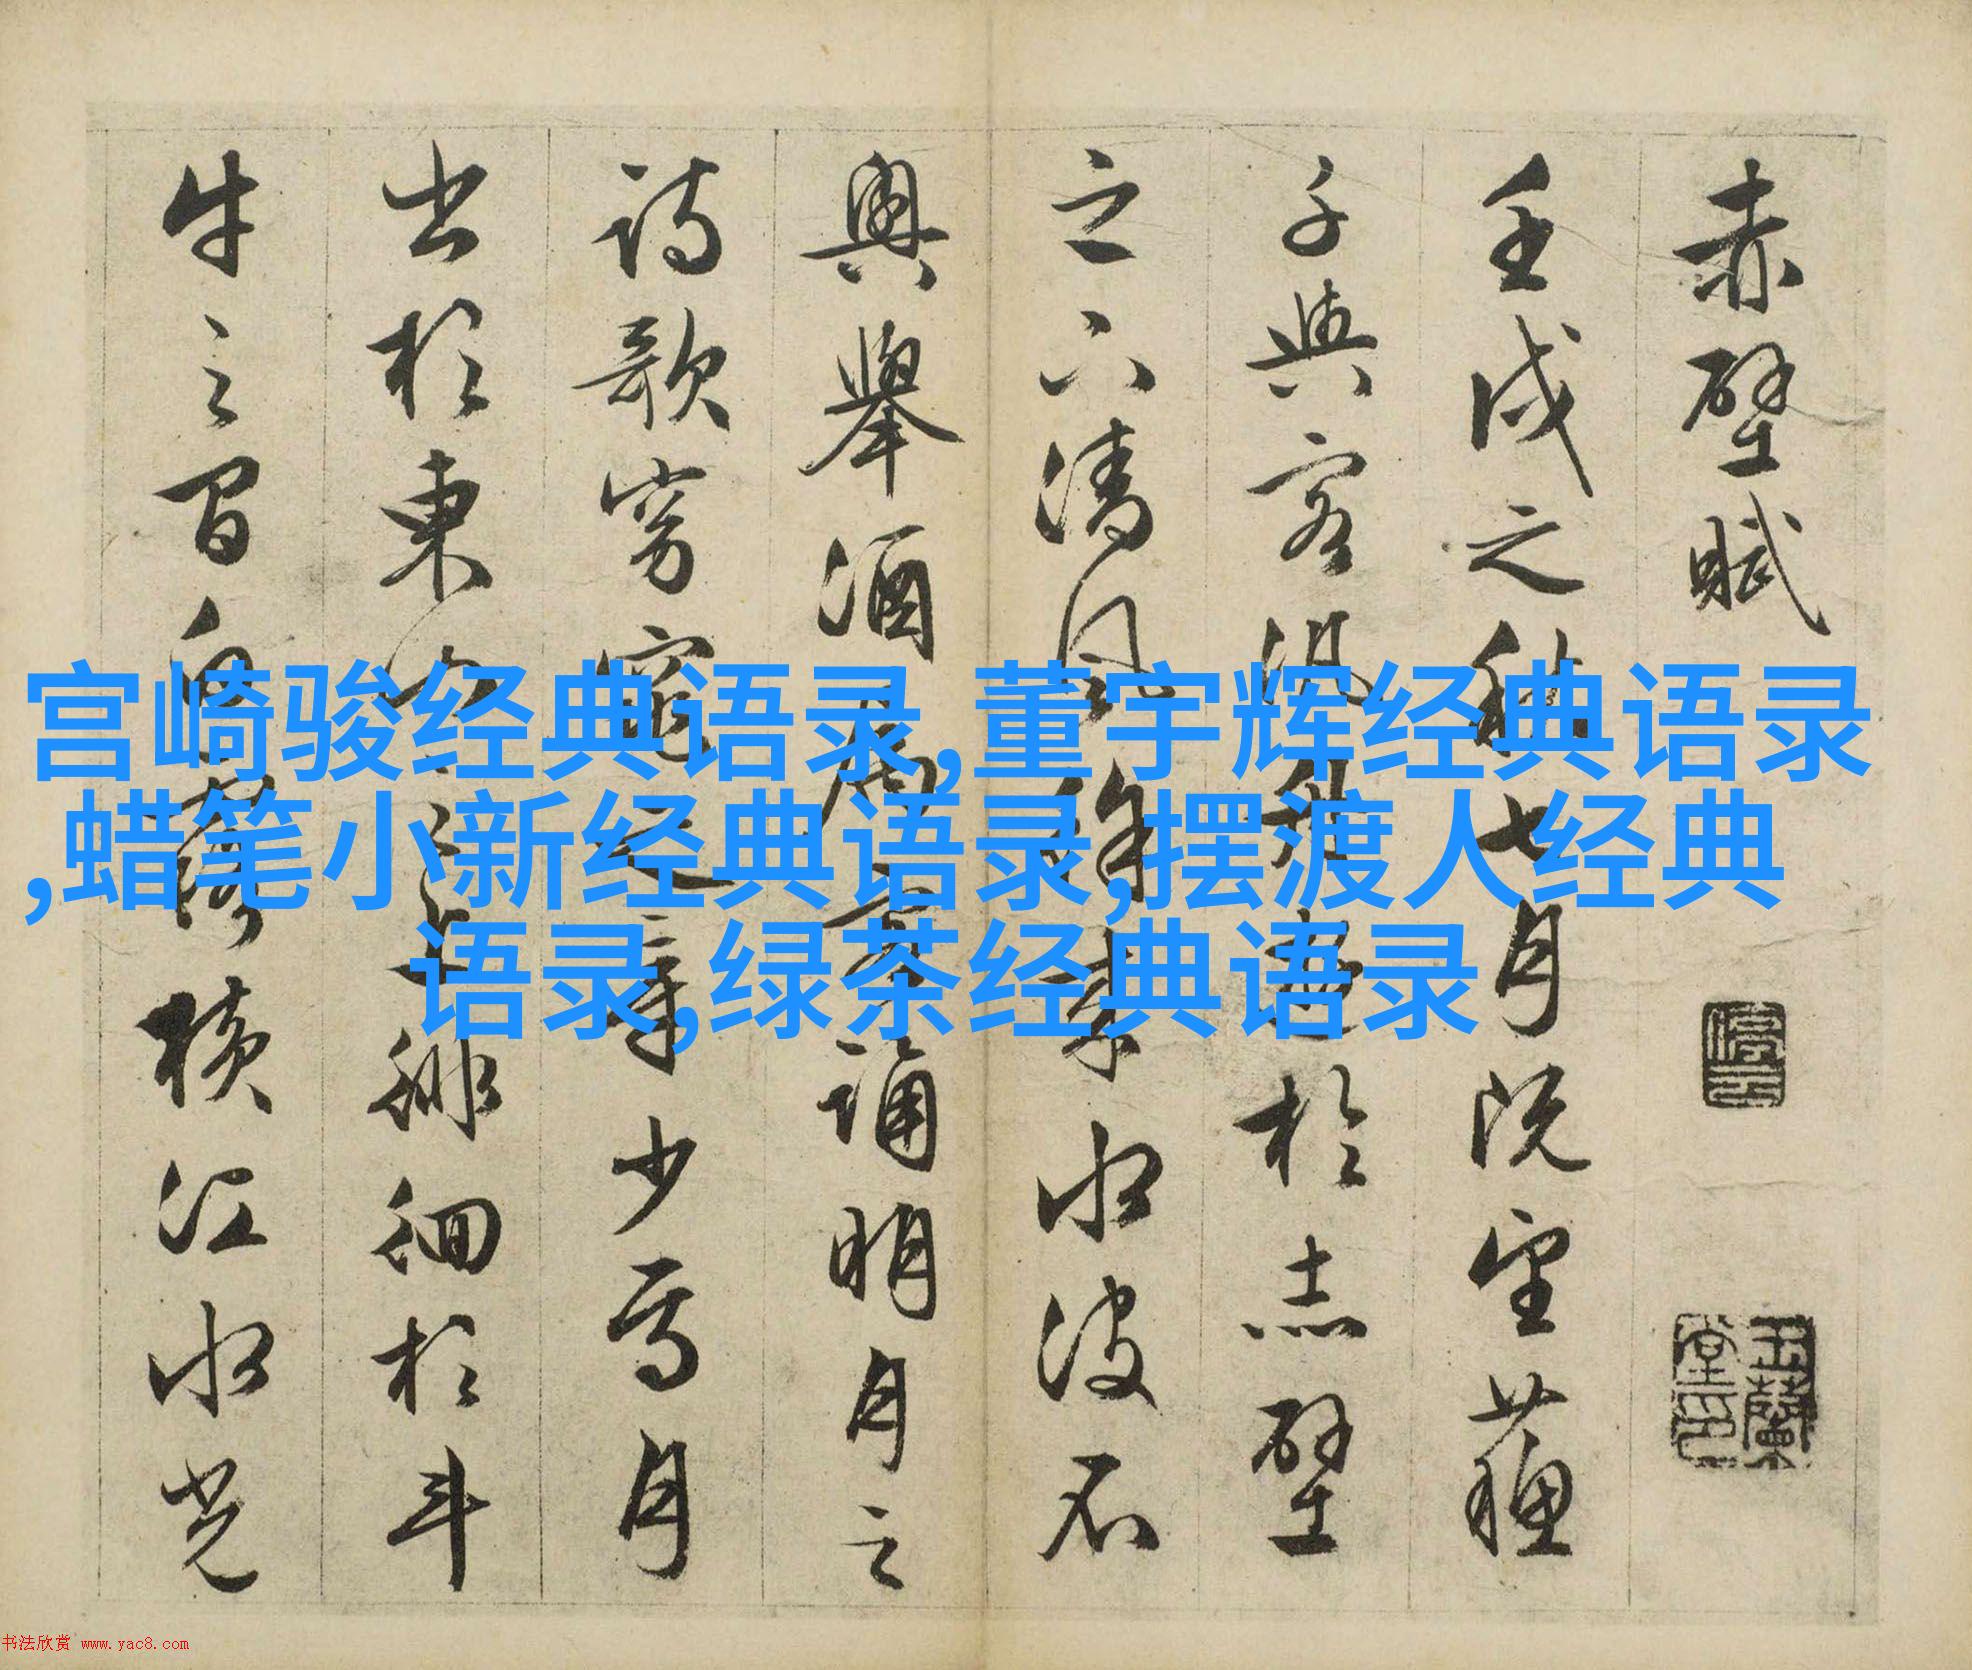 赤壁賦
壬戌之秋七月既望蘓
子與客泛舟遊於赤壁
之下清風徐來水波不
興舉酒屬客誦明月之
詩歌窈窕之章少焉月
出於東山之上徘徊於斗
牛之間白露横江水光
停云
玉蘭堂印
宫崎骏经典语录,董宇辉经典语录
,蜡笔小新经典语录,摆渡人经典
语录,绿茶经典语录
书法欣赏 www.yac8.com